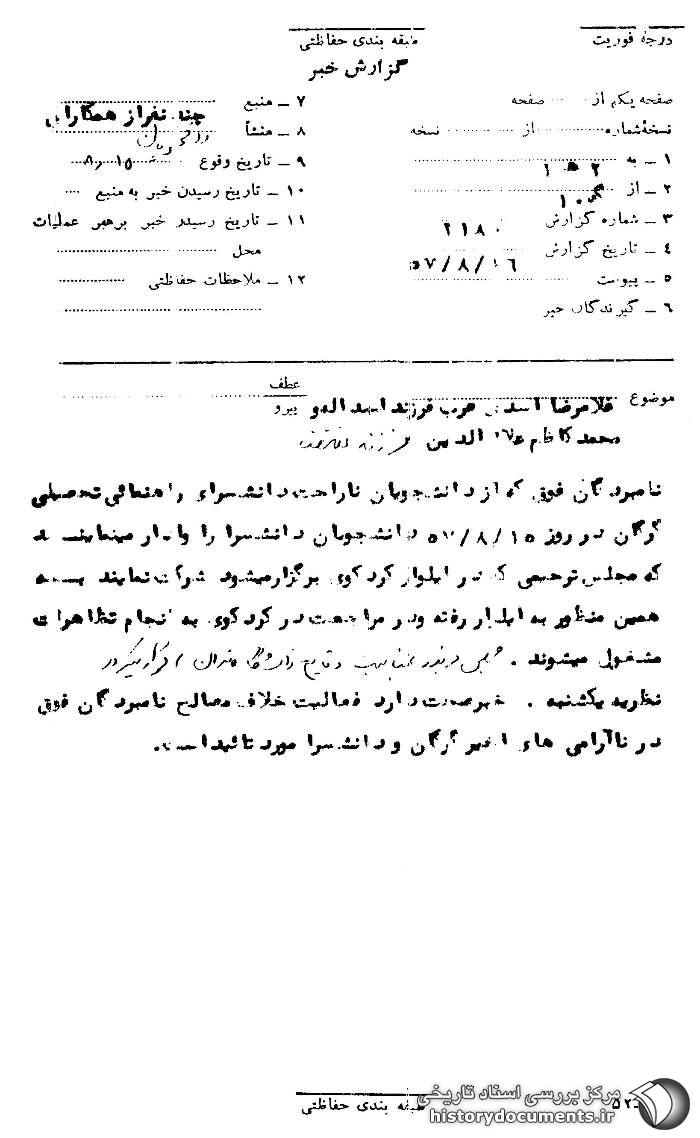 درجهٔ فوریت
طبقه بندی حفاظتی
گزارش خبر
صفحه یکم از ........ صفحه
نسخهٔ شماره ........ از ........ نسخه
۱ ـ به ۲ ه ۱
۲ ـ از
۳ ـ شماره گزارش ۲۱۸۰
۴ ـ تاریخ گزارش ۵۷/۸/۱۶
۵ ـ پیوست
۶ ـ گیرندگان خبر
۷ ـ منبع چند نفر از همکاران
۸ ـ منشأ
۹ ـ تاریخ وقوع ۸،۱۵
۱۰ ـ تاریخ رسیدن خبر به منبع
۱۱ ـ تاریخ رسیدن خبر برهبر عملیات
محل
۱۲ ـ ملاحظات حفاظتی
موضوع غلامرضا اسدی عرب فرزند اسداله و
عطف
پیرو
محمد کاظم علاء الدین فرزند
نامبردگان فوق که از دانشجویان ناراحت دانشسرای راهنمائی تحصیلی
گرگان در روز ۵۷/۸/۱۵ دانشجویان دانشسرا را وادار مینمایند
که مجلس ترحیمی که در ایلوار کردکوی برگزار میشود شرکت نمایند بهمین
همین منظور به ایلوار رفته و در مراجعت در کردکوی به انجام تظاهرات
مشغول میشوند .
نظریه یکشنبه . خبر صحت دارد فعالیت خلاف مصالح نامبردگان فوق
در ناآرامی های اخیر گرگان و دانشسرا مورد تائید است.
طبقه بندی حفاظتی
مرکز بررسی اسناد تاریخی
historydocuments.ir